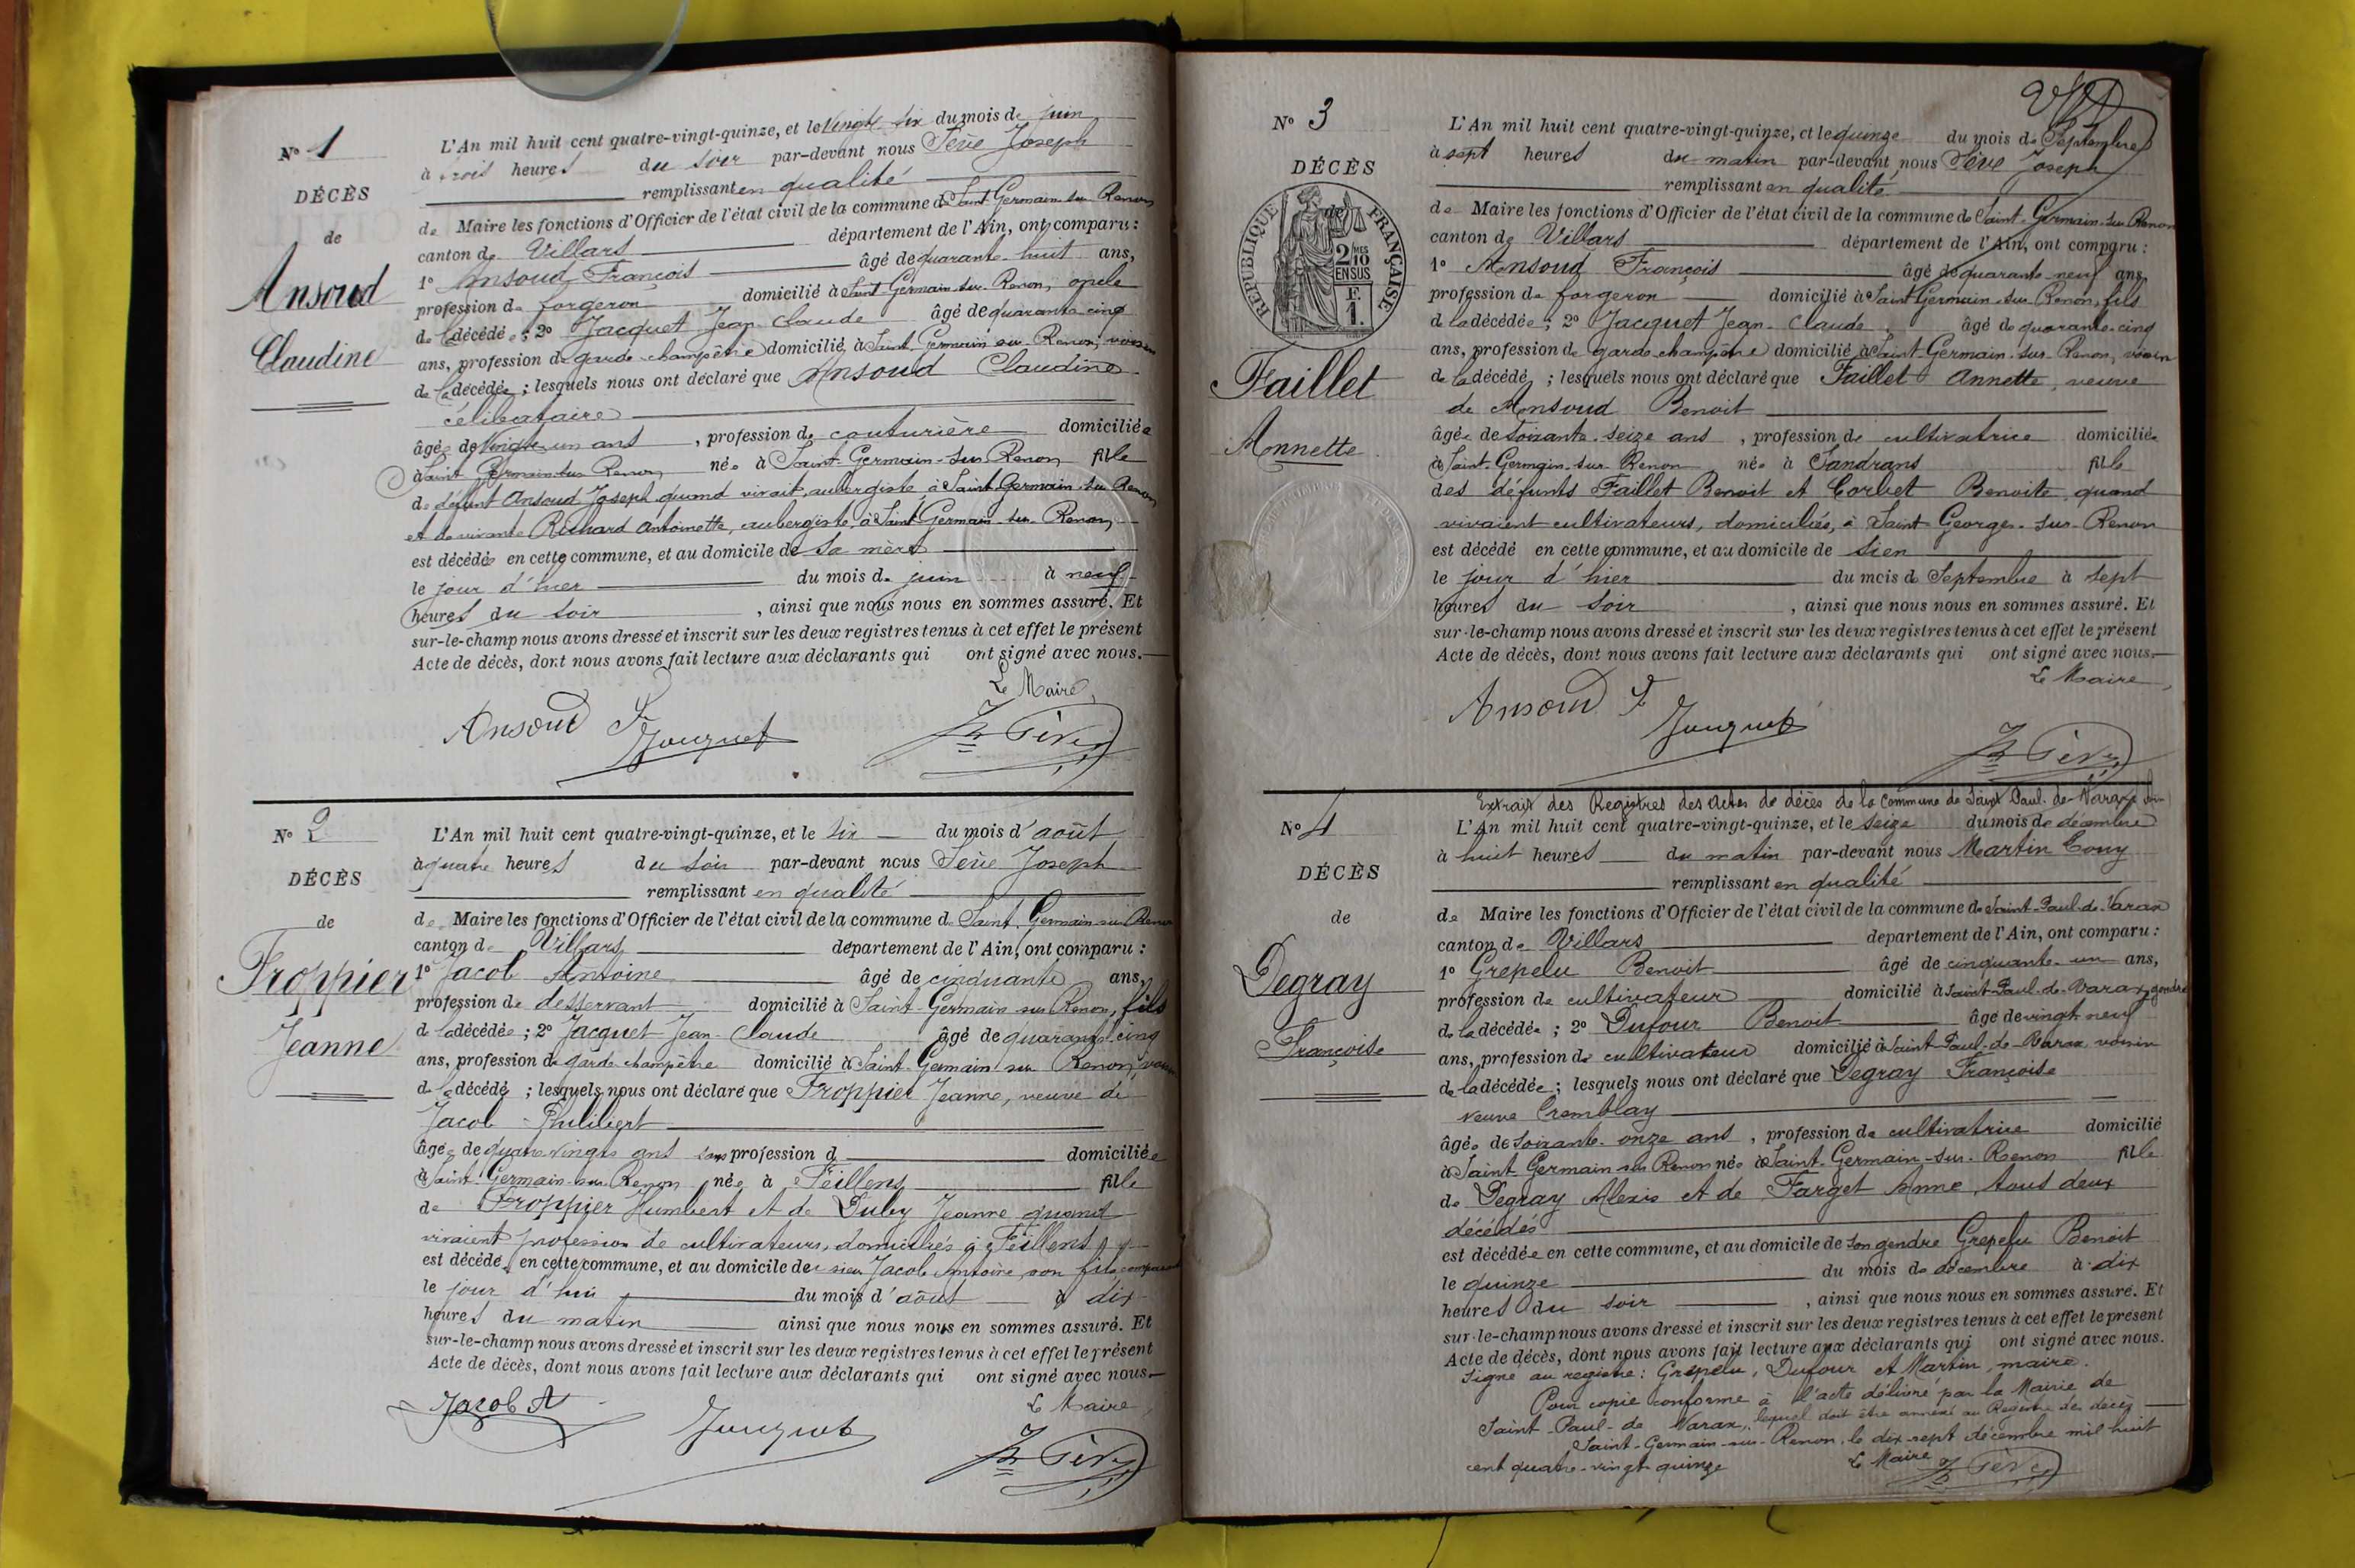 N° 1
DÉCÈS
de
Ansoud
Claudine
L'An mil huit cent quatre-vingt-quinze, et le vingt-six du mois de juin
à trois heures du soir par-devant nous Sève Joseph
remplissant en qualité
de Maire les fonctions d'Officier de l'état civil de la commune de Saint-Germain-sur-Renon
canton de Villars département de l'Ain, ont comparu :
1° Ansoud François âgé de quarante-huit ans,
profession de forgeron domicilié à Saint-Germain-sur-Renon, oncle
de la décédée ; 2° Jacquet Jean-Claude âgé de quarante-cinq
ans, profession de garde-champêtre domicilié à Saint-Germain-sur-Renon, voisin
de la décédée ; lesquels nous ont déclaré que Ansoud Claudine
célibataire
âgée de vingt-un ans , profession de couturière domiciliée
à Saint-Germain-sur-Renon née à Saint-Germain-sur-Renon fille
de défunt Ansoud Joseph quand vivait, aubergiste à Saint-Germain-sur-Renon
et de vivante Richard Antoinette, aubergiste, à Saint-Germain-sur-Renon,
est décédée en cette commune, et au domicile de sa mère
le jour d'hier du mois de juin à neuf
heures du soir , ainsi que nous nous en sommes assuré. Et
sur-le-champ nous avons dressé et inscrit sur les deux registres tenus à cet effet le présent
Acte de décès, dont nous avons fait lecture aux déclarants qui ont signé avec nous.
Le Maire,
Ansoud F.
Jacquet
Jh Sève
N° 2
DÉCÈS
de
Froppier
Jeanne
L'An mil huit cent quatre-vingt-quinze, et le six du mois d'août
à quatre heures du soir par-devant nous Sève Joseph
remplissant en qualité
de Maire les fonctions d'Officier de l'état civil de la commune de Saint-Germain-sur-Renon
canton de Villars département de l'Ain, ont comparu :
1° Jacob Antoine âgé de cinquante ans,
profession de desservant domicilié à Saint-Germain-sur-Renon, fils
de la décédée ; 2° Jacquet Jean-Claude âgé de quarante-cinq
ans, profession de garde-champêtre domicilié à Saint-Germain-sur-Renon, voisin
de la décédé ; lesquels nous ont déclaré que Froppier Jeanne, veuve de
Jacob Philibert
âgée de quatre-vingts ans sans profession d domiciliée
à Saint-Germain-sur-Renon née à Feillens fille
de Froppier Humbert et de Duby Jeanne quand
vivaient profession de cultivateurs, domiciliés à Feillens
est décédé en cette commune, et au domicile de sieur Jacob Antoine, son fils, comparant
le jour d'hui du mois d'août à dix
heures du matin ainsi que nous nous en sommes assuré. Et
sur-le-champ nous avons dressé et inscrit sur les deux registres tenus à cet effet le présent
Acte de décès, dont nous avons fait lecture aux déclarants qui ont signé avec nous.
Le Maire,
Jacob A
Jacquet
Jh Sève
N° 3
DÉCÈS
de
RÉPUBLIQUE FRANÇAISE
2 MES
10
EN SUS
F.
1.
Faillet
Annette
L'An mil huit cent quatre-vingt-quinze, et le quinze du mois de Septembre
à sept heures du matin par-devant nous Sève Joseph
remplissant en qualité
de Maire les fonctions d'Officier de l'état civil de la commune de Saint-Germain-sur-Renon
canton de Villars département de l'Ain, ont comparu :
1° Ansoud François âgé de quarante-neuf ans,
profession de forgeron domicilié à Saint-Germain-sur-Renon, fils
de la décédée ; 2° Jacquet Jean-Claude âgé de quarante-cinq
ans, profession de garde-champêtre domicilié à Saint-Germain-sur-Renon, voisin
de la décédé ; lesquels nous ont déclaré que Faillet Annette, veuve
de Ansoud Benoit
âgée de soixante-seize ans , profession de cultivatrice domiciliée
à Saint-Germain-sur-Renon née à Sandrans fille
des défunts Faillet Benoit et Corbet Benoite, quand
vivaient cultivateurs, domiciliés, à Saint-Georges-sur-Renon
est décédé en cette commune, et au domicile de sien
le jour d'hier du mois de Septembre à sept
heures du soir , ainsi que nous nous en sommes assuré. Et
sur-le-champ nous avons dressé et inscrit sur les deux registres tenus à cet effet le présent
Acte de décès, dont nous avons fait lecture aux déclarants qui ont signé avec nous.
Le Maire,
Ansoud F
Jacquet
Jh Sève
Extrait des Registres des Actes de décès de la Commune de Saint-Paul-de-Varax
N° 4
DÉCÈS
de
Degray
Françoise
L'An mil huit cent quatre-vingt-quinze, et le seize du mois de décembre
à huit heures du matin par-devant nous Martin Cony
remplissant en qualité
de Maire les fonctions d'Officier de l'état civil de la commune de Saint-Paul-de-Varax
canton de Villars département de l'Ain, ont comparu :
1° Grepelu Benoit âgé de cinquante-un ans,
profession de cultivateur domicilié à Saint-Paul-de-Varax, gendre
de la décédée ; 2° Dufour Benoit âgé de vingt-neuf
ans, profession de cultivateur domicilié à Saint-Paul-de-Varax voisin
de la décédée ; lesquels nous ont déclaré que Degray Françoise
veuve Cremblay
âgée de soixante-onze ans , profession de cultivatrice domicilié
à Saint-Germain-sur-Renon née à Saint-Germain-sur-Renon fille
de Degray Alexis et de Farget Anne, tous deux
décédés
est décédée en cette commune, et au domicile de son gendre Grepelu Benoit
le quinze du mois de décembre à dix
heures du soir , ainsi que nous nous en sommes assuré. Et
sur-le-champ nous avons dressé et inscrit sur les deux registres tenus à cet effet le présent
Acte de décès, dont nous avons fait lecture aux déclarants qui ont signé avec nous.
Signé au registre : Grepelu, Dufour et Martin, maire.
Pour copie conforme à l'acte délivré par la Mairie de
Saint-Paul-de-Varax, lequel doit être annexé au Registre des décès
Saint-Germain-sur-Renon, le dix-sept décembre mil huit
cent quatre-vingt-quinze
Le Maire
Jh Sève